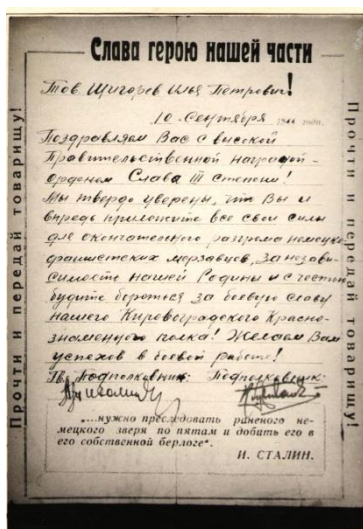 Слава герою нашей части
Тов. Щигорев Илья Петрович!
10 Сентября 1944 года.
Поздравляем Вас с высокой
Правительственной наградой -
орденом Слава III степени!
Мы твердо уверены, что Вы и
впредь приложите все свои силы
для окончательного разгрома немецко
фашистских мерзавцев, за незави-
симость нашей Родины и с честью
будите бороться за боевую славу
нашего Кировоградского Красно-
знаменного полка! Желаем Вам
успехов в боевой работе!
Гв. Подполковник Подполковник
„...нужно преследовать раненого не-
мецкого зверя по пятам и добить его в
его собственной берлоге“.
И. СТАЛИН.
Прочти и передай товарищу!
Прочти и передай товарищу!